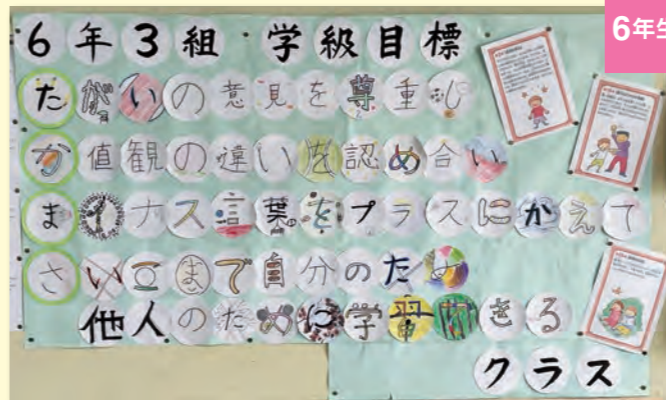 6年生
6年3組 学級目標
たがいの意見を尊重し
か値観の違いを認め合い
まイナス言葉をプラスにかえて
さいごまで自分のため
他人のために学習できる
クラス